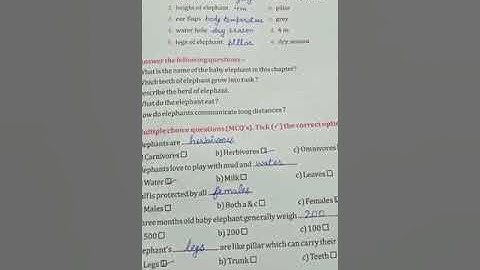 2. height of elephant 4m b. pillar
3. ear flaps body temperature c. grey
4. water hole dry season d. 4 m
5. legs of elephant pillar e. dry season
nswer the following questions:-
What is the name of the baby elephant in this chapter?
Which teeth of elephant grow into tusk?
escribe the herd of elephant.
What do the elephant eat?
ow do elephants communicate long distances?
ultiple choice questions (MCQ's). Tick (✓) the correct optio
lephants are herbivores
Carnivores ☐ b) Herbivores ☑ c) Omnivores
lephants love to play with mud and water
Water ☑ b) Milk ☐ c) Leaves ☐
alf is protected by all females
Males ☐ b) Both a & c ☐ c) Females
hree months old baby elephant generally weigh 200
500 ☐ b) 200 ☐ c) 100 ☐
ephant's legs are like pillar which can carry their
Legs ☑ b) Trunk ☐ c) Teeth ☐